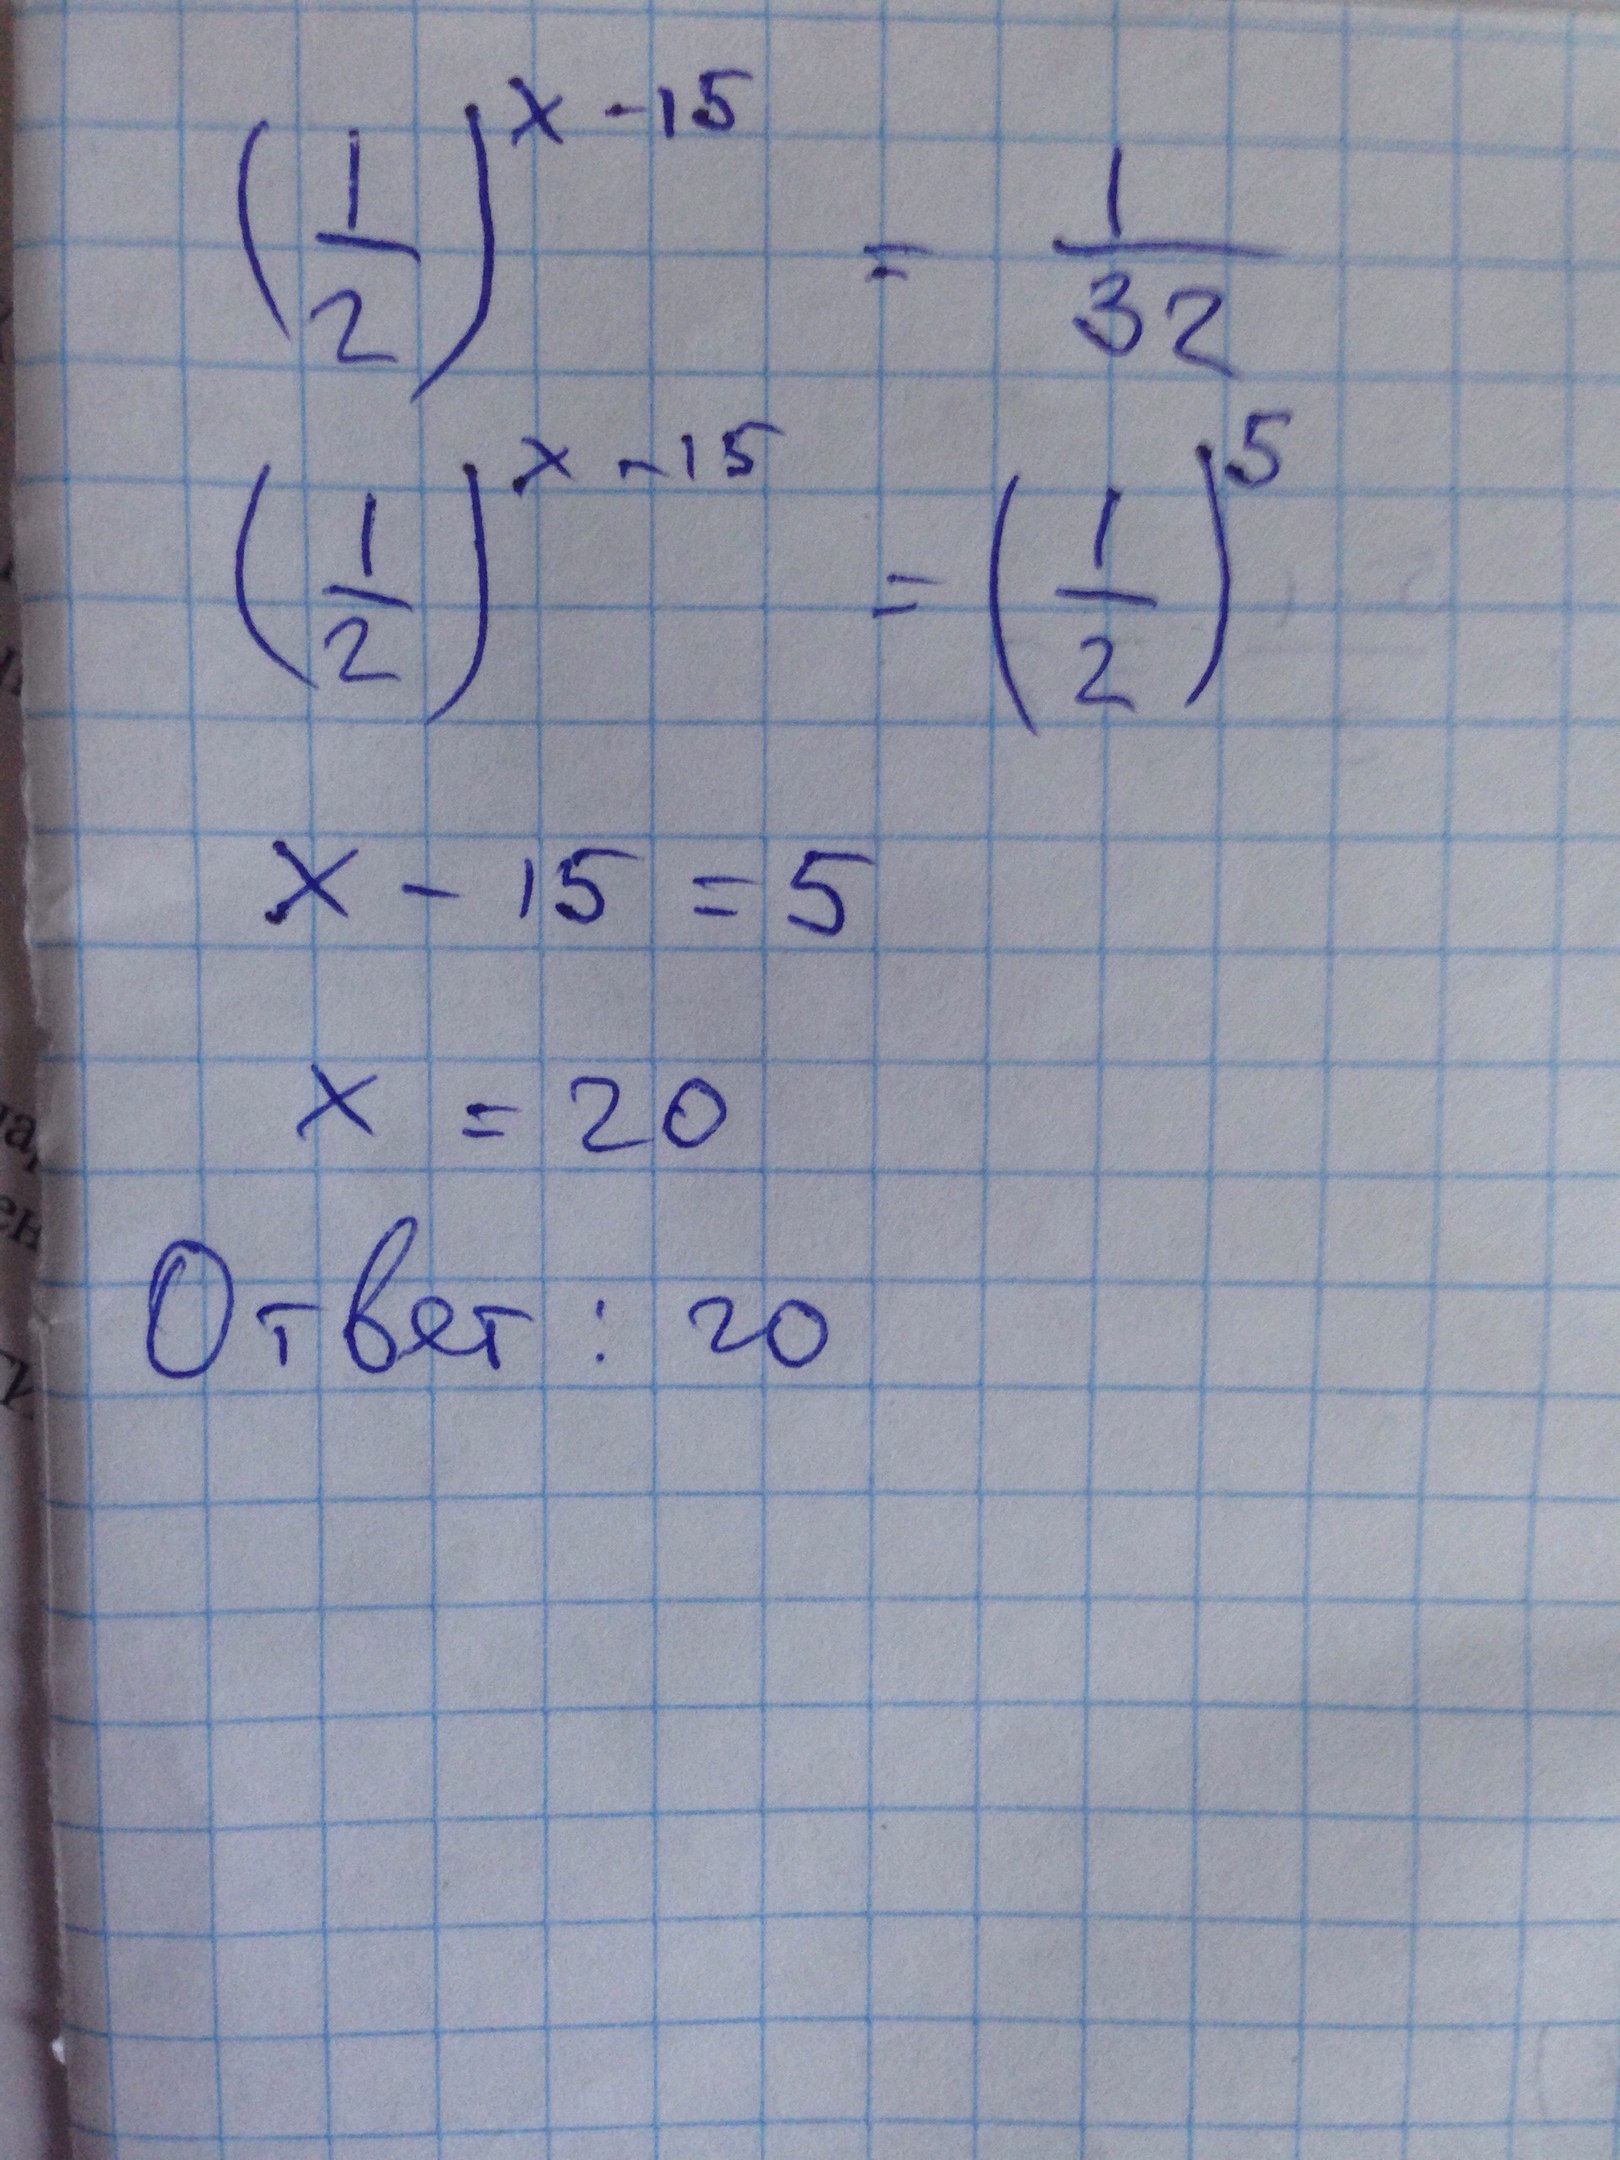 (1/2)^(x-15) = 1/32
(1/2)^(x-15) = (1/2)^5
x - 15 = 5
x = 20
Ответ: 20